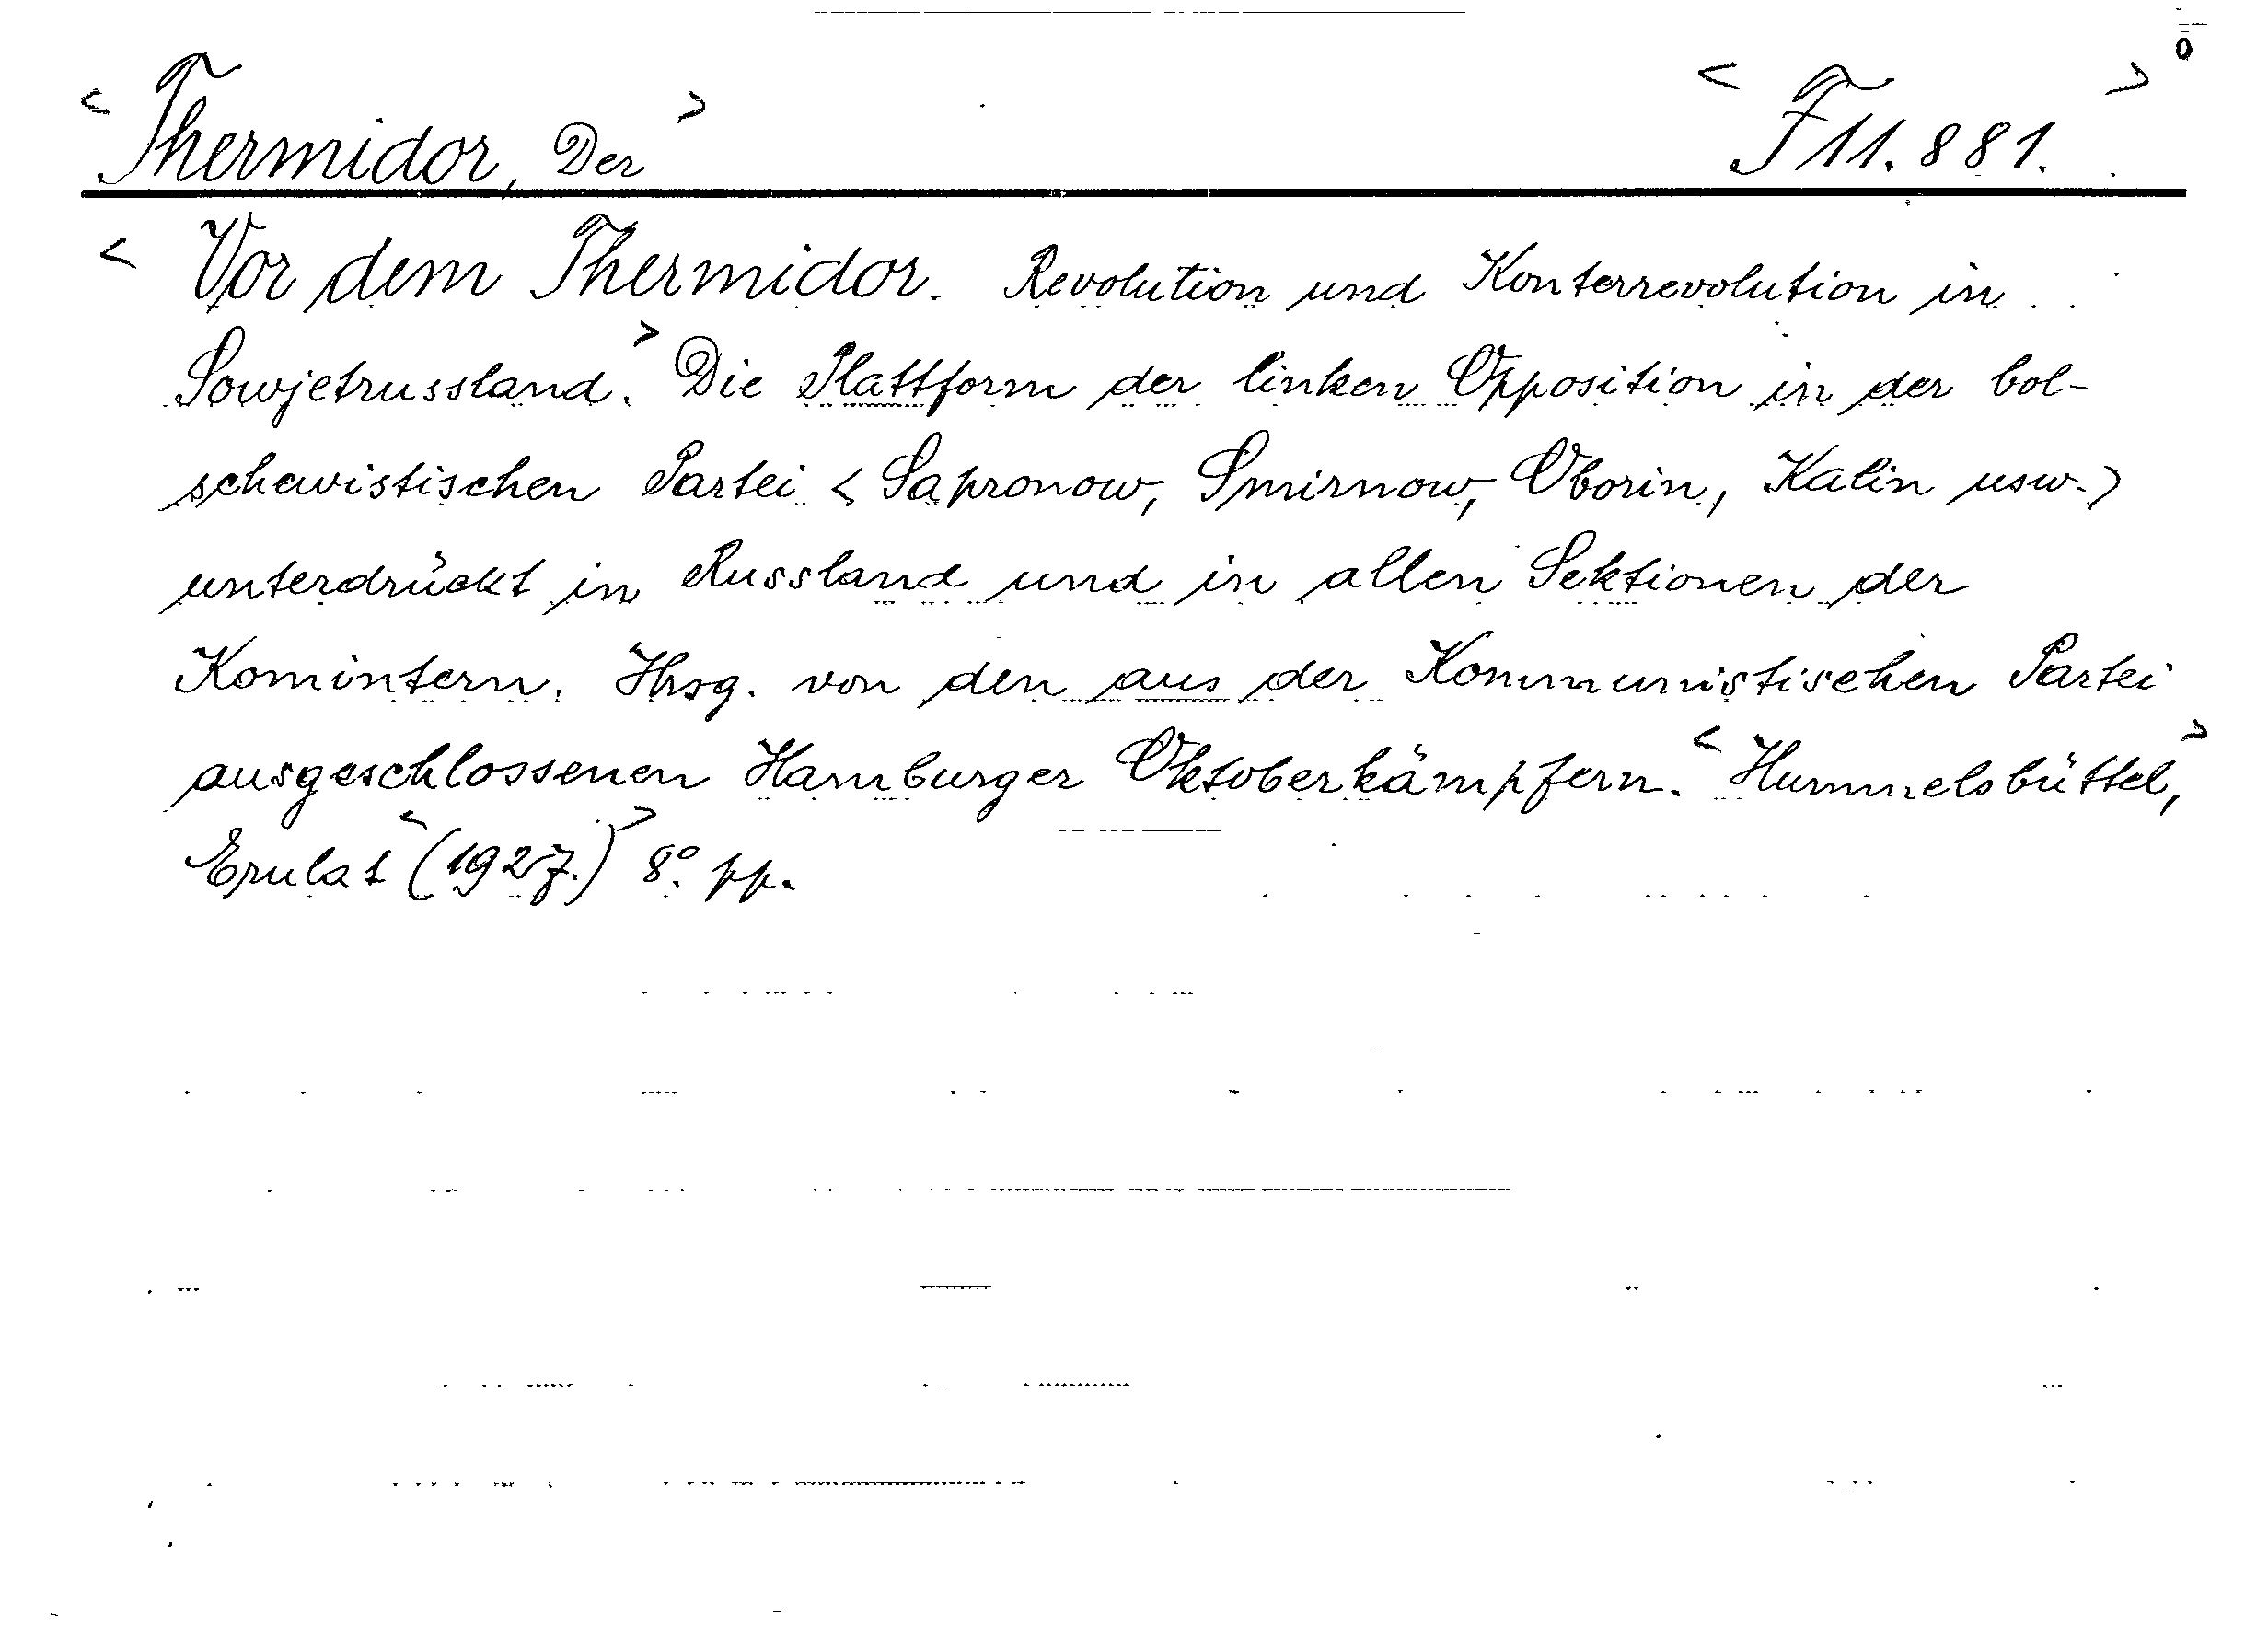 < Thermidor, Der > < F 11.881. >
< Vor dem Thermidor. Revolution und Konterrevolution in
Sowjetrussland. > Die Plattform der linken Opposition in der bol-
schewistischen Partei < Sapronow, Smirnow, Oborin, Kalin usw. >
unterdrückt in Russland und in allen Sektionen der
Komintern. Hrsg. von den aus der Kommunistischen Partei
ausgeschlossenen Hamburger Oktoberkämpfern. < Hummelsbüttel, >
Erulat < (1927.) > 8° pp.